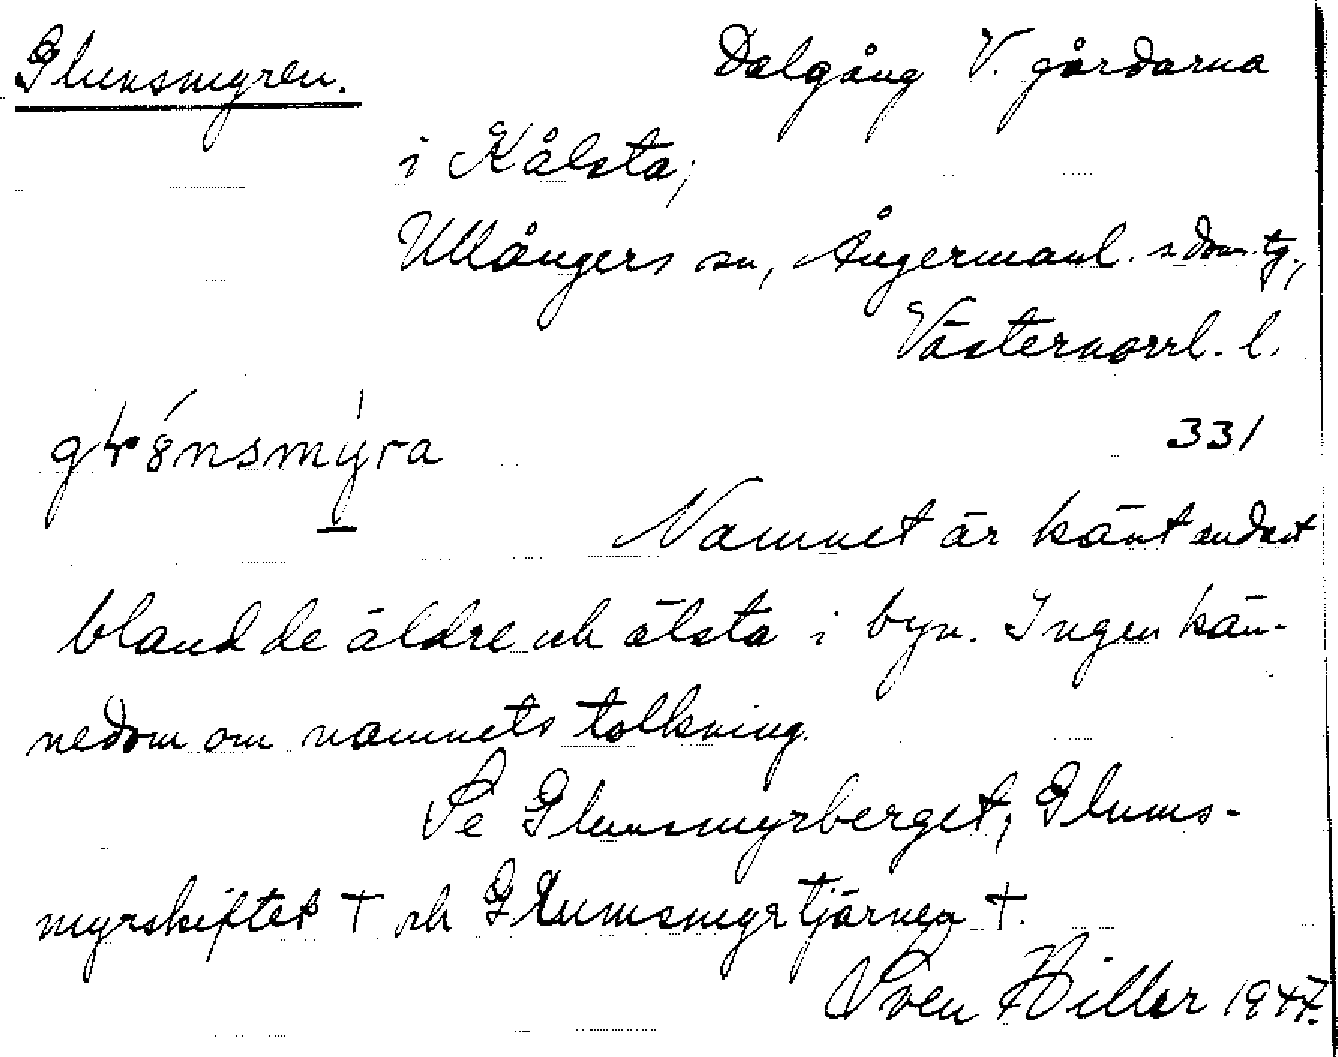 Glunsmyren. Dalgång V. gårdarna
i Kålsta,
Ullångers sn, Ångermanl. s domtg.,
Västernorrl. l.
331
Namnet är känt endast
bland de äldre och älsta i byn. Ingen kän-
nedom om namnets tolkning.
Se Glunsmyrberget, Glums-
myrskiftet † och Glumsmyrtjärnen †.
Sven Hiller 1947.